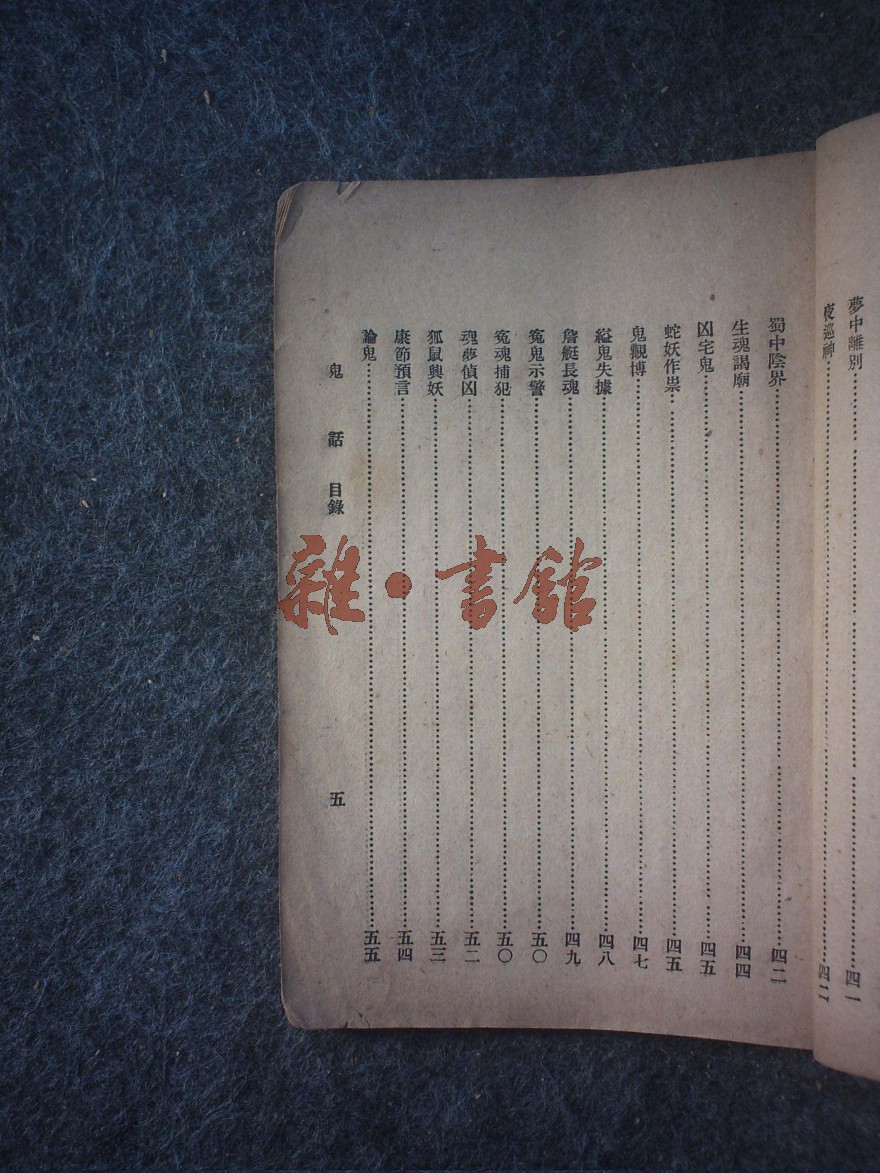 夢中離別……四一
夜巡神……四二
蜀中陰界……四二
生魂謁廟……四四
凶宅鬼……四五
蛇妖作祟……四五
鬼觀博……四七
縊鬼失據……四八
詹艇長魂……四九
冤鬼示警……五〇
冤魂捕犯……五〇
魂夢偵凶……五二
狐鼠興妖……五三
康節預言……五四
論鬼……五五
鬼話 目錄 五
雜·書館